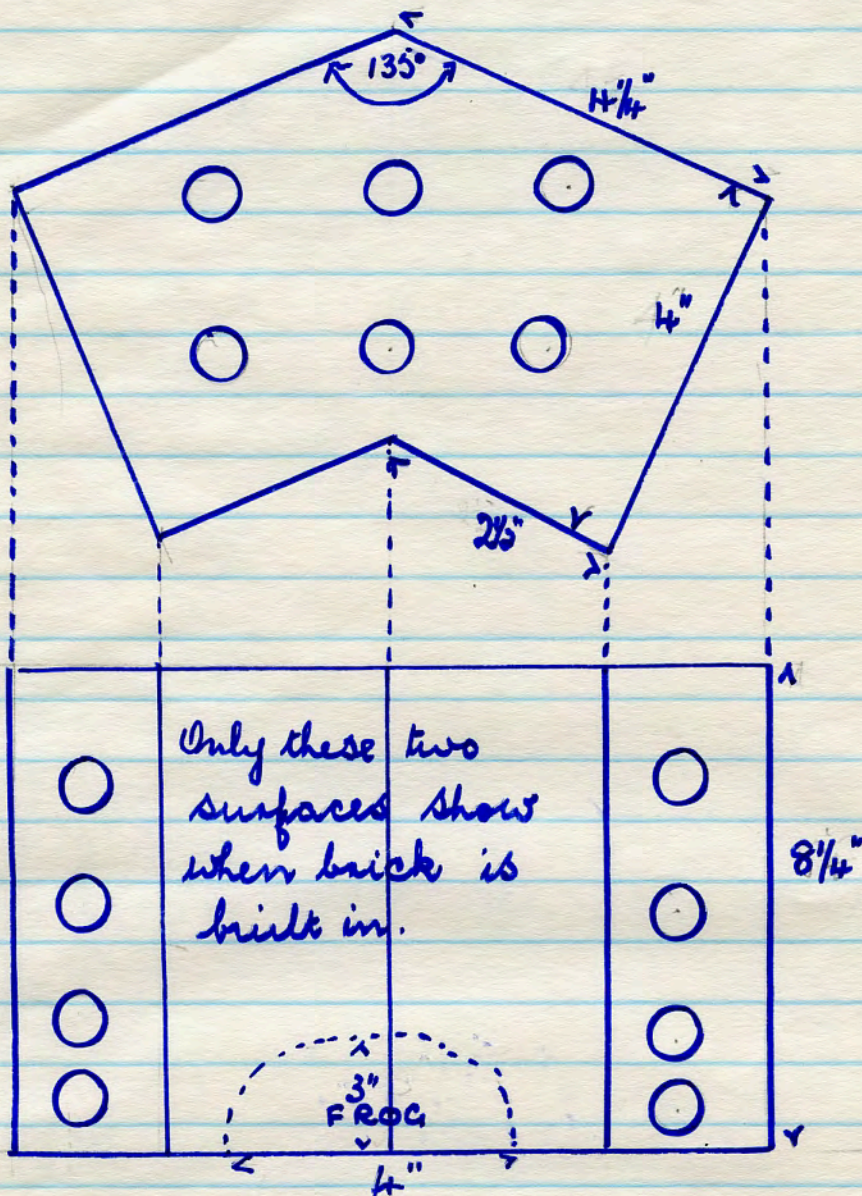 135°
4¼"
4"
2½"
Only these two
surfaces show
when brick is
built in.
8¼"
3"
FROG
4"